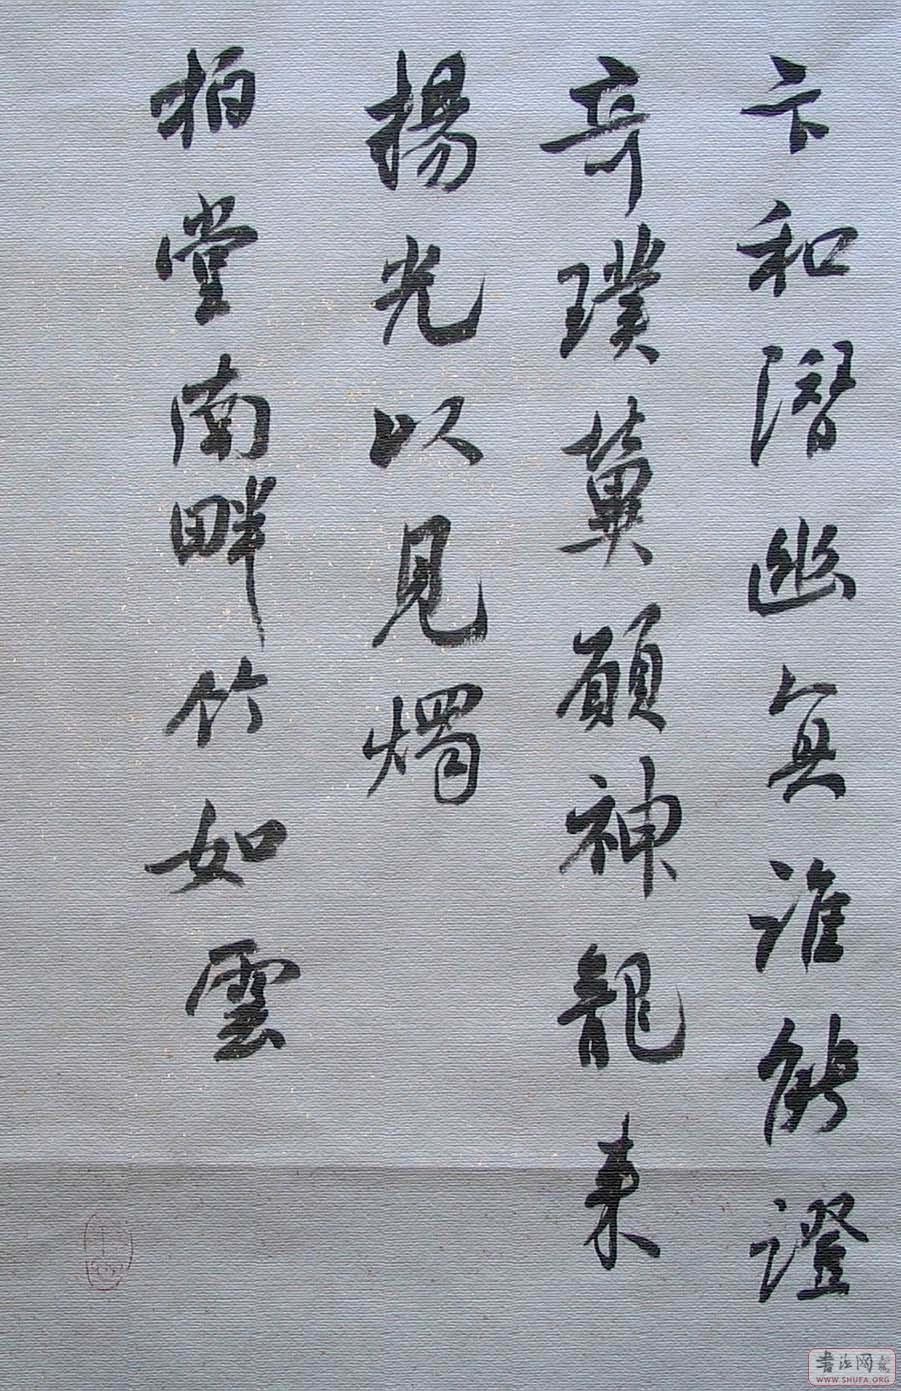 卞和潛幽冥誰能證
奇璞冀願神龍来
揚光以見燭
柏堂南畔竹如雲
書法网
WWW.SHUFA.ORG